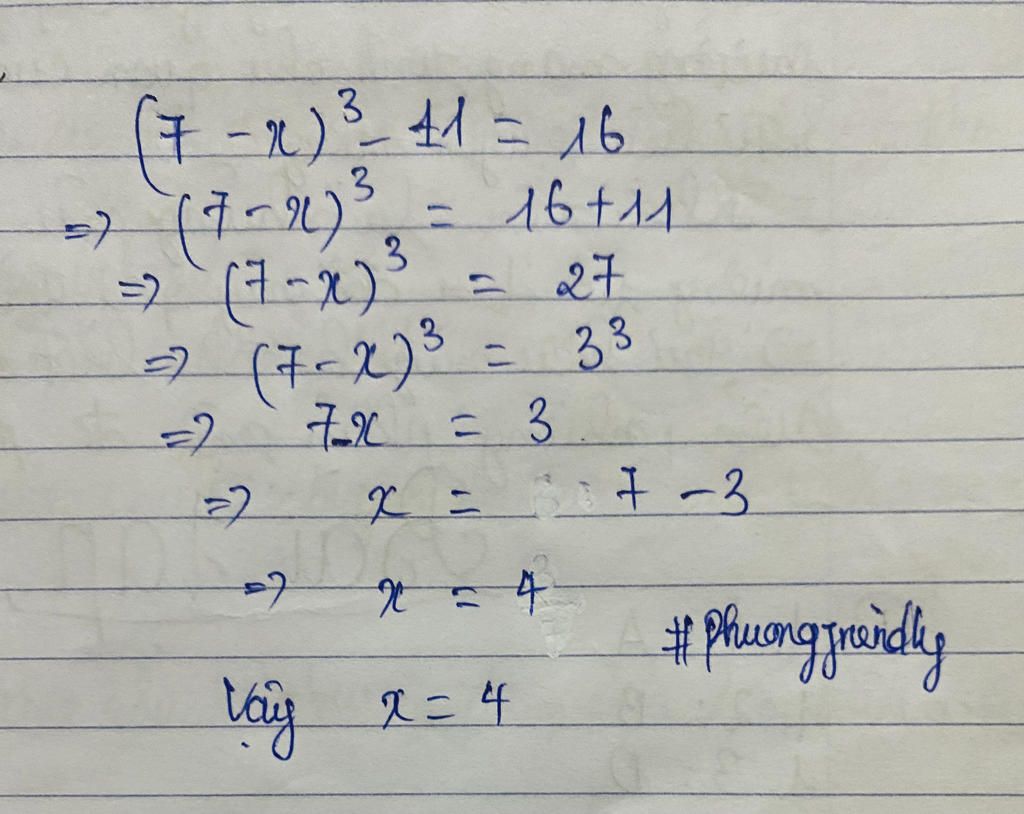 (7 - x)³ - 11 = 16
=> (7 - x)³ = 16 + 11
=> (7 - x)³ = 27
=> (7 - x)³ = 3³
=> 7 - x = 3
=> x = 7 - 3
=> x = 4
#phuongfriendly
Vậy x = 4